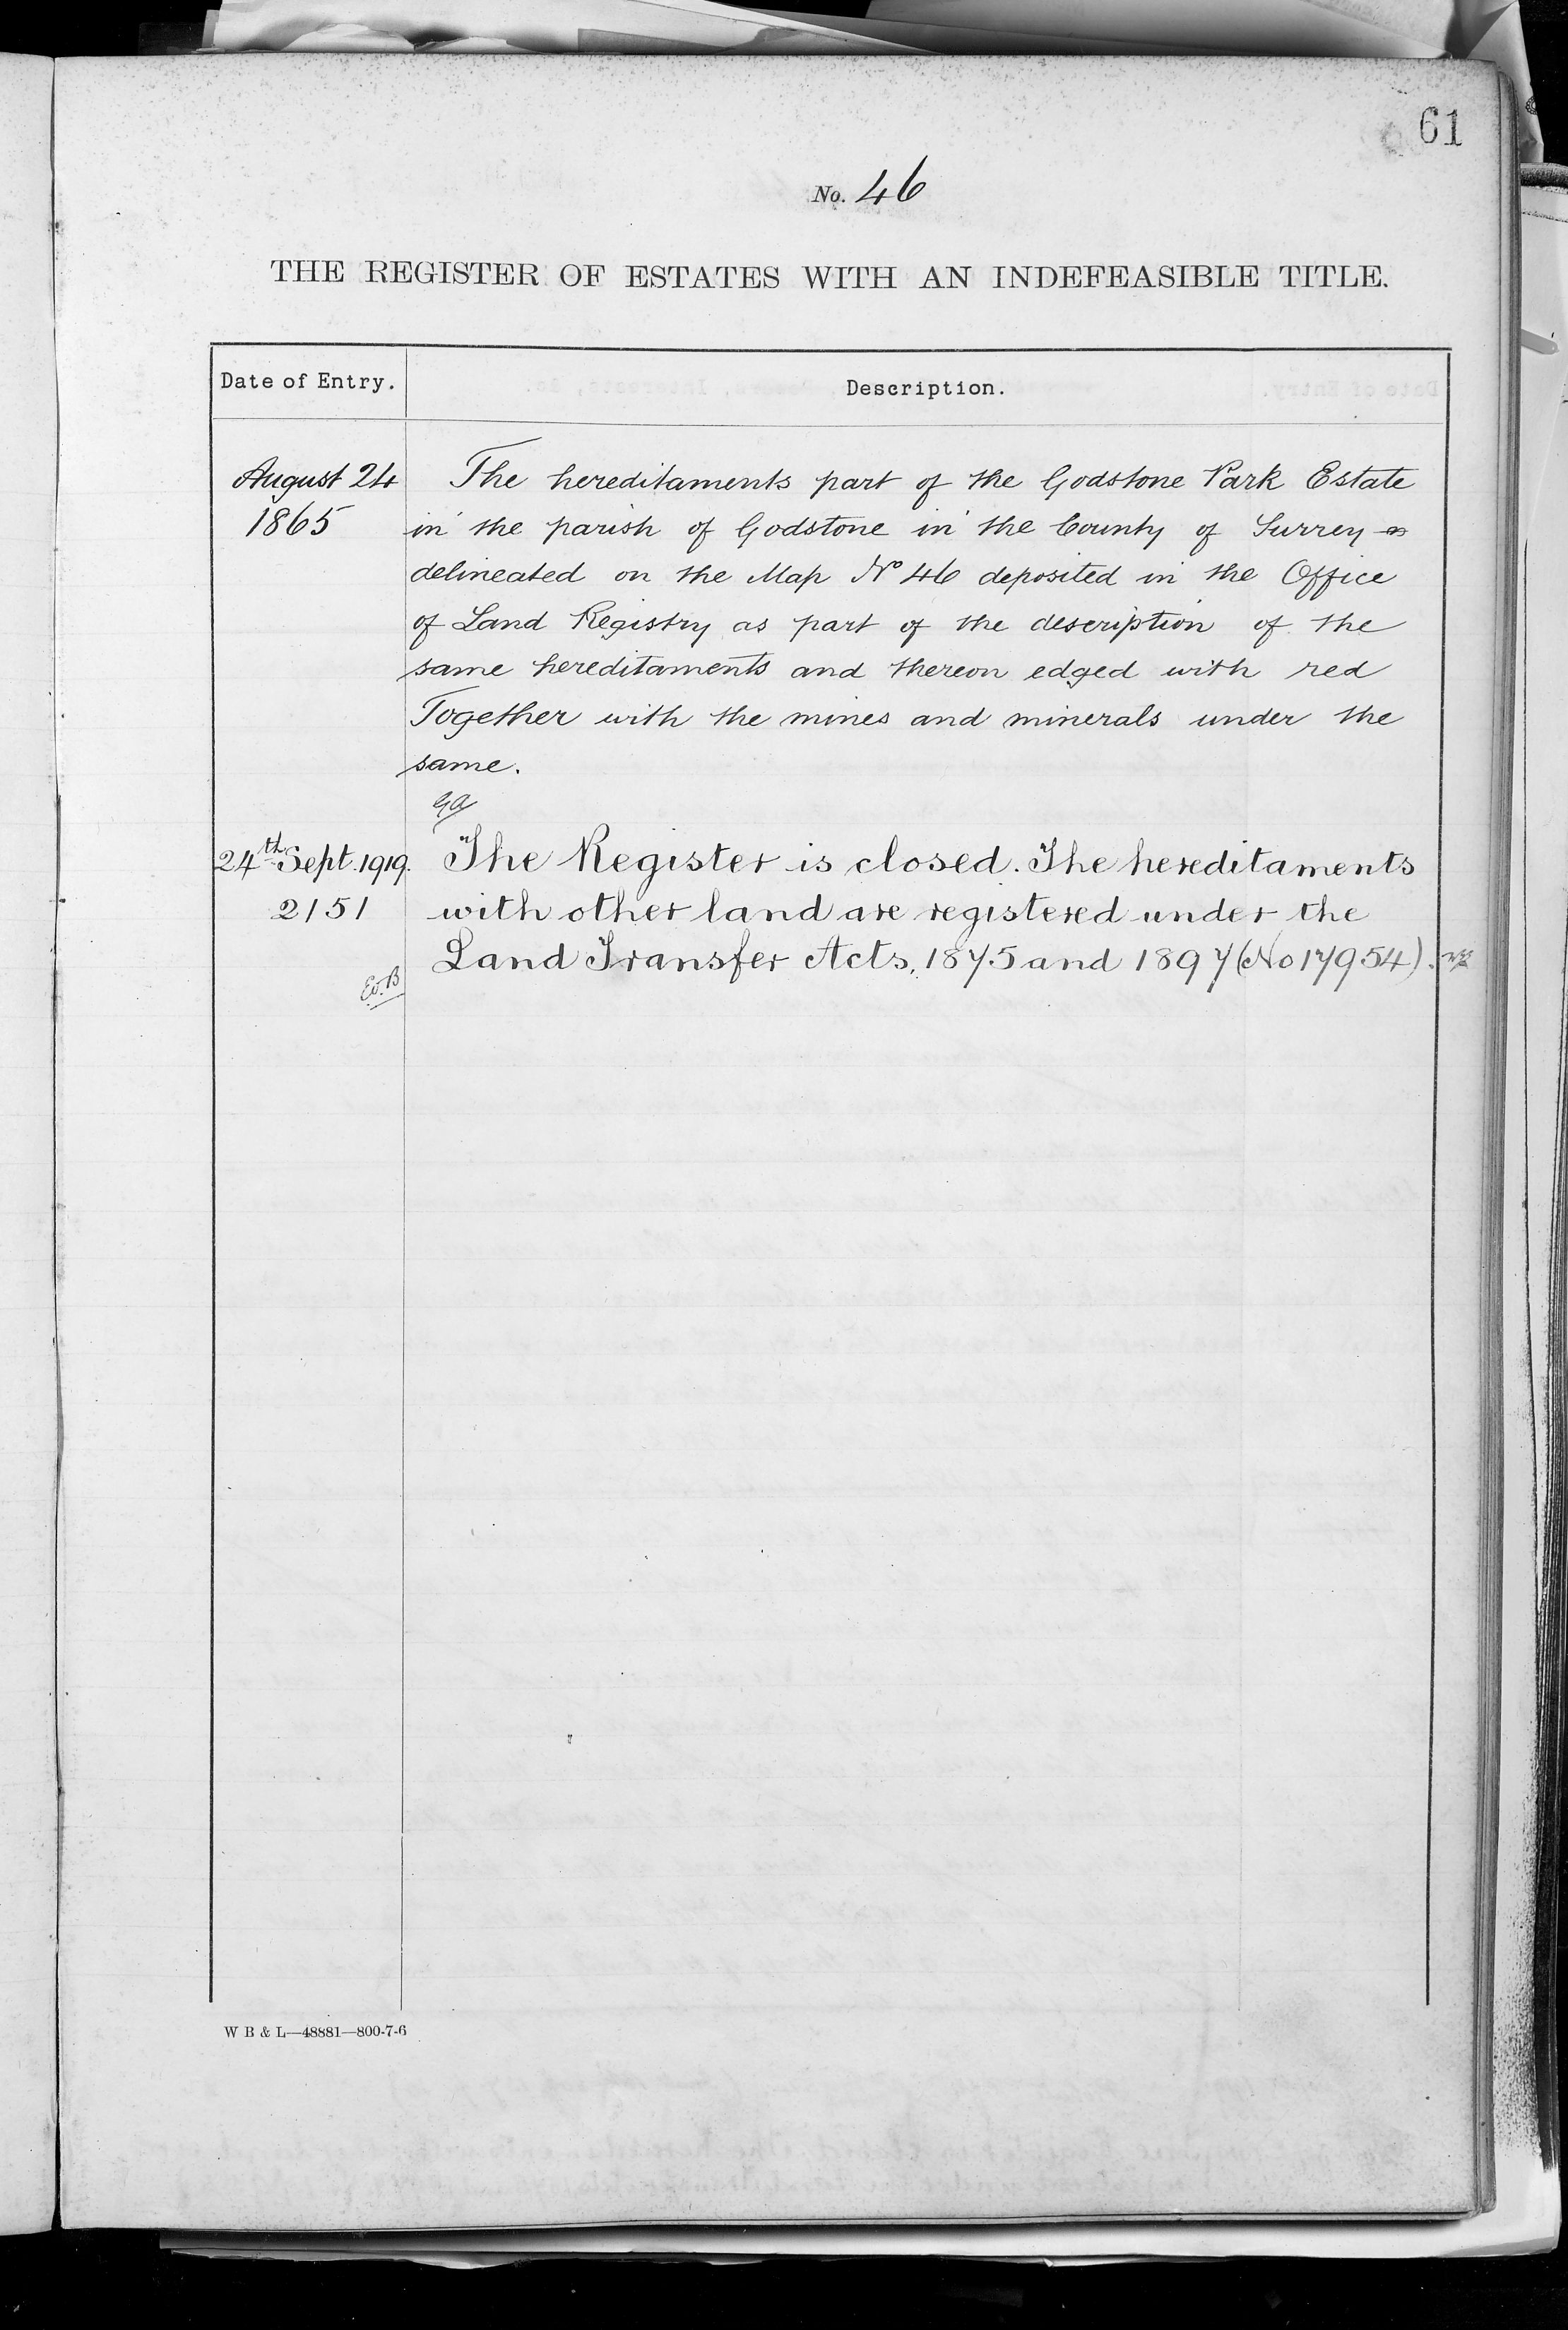 61
No. 46
THE REGISTER OF ESTATES WITH AN INDEFEASIBLE TITLE.
Date of Entry.
Description.
August 24
1865
The hereditaments part of the Godstone Park Estate
in the parish of Godstone in the County of Surrey as
delineated on the Map No 46 deposited in the Office
of Land Registry as part of the description of the
same hereditaments and thereon edged with red
Together with the mines and minerals under the
same.
GA
24th Sept. 1919.
2151
E.B
The Register is closed. The hereditaments
with other land are registered under the
Land Transfer Acts, 1875 and 1897 (No 17954).
W B & L—48881—800-7-6